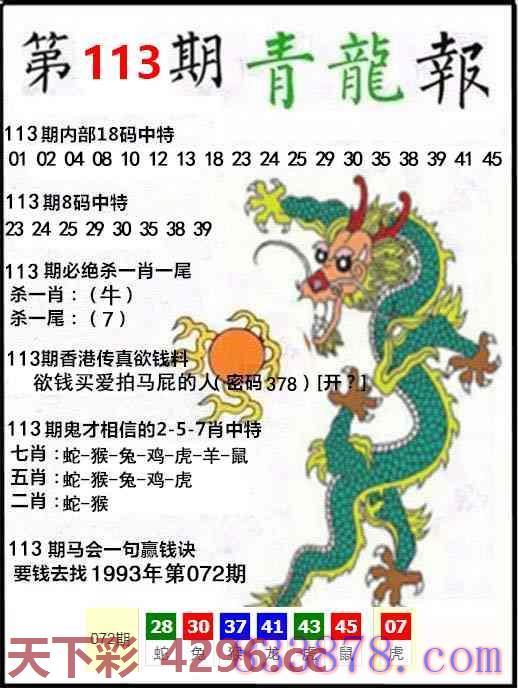 第113期青龍報
113期内部18码中特
01 02 04 08 10 12 13 18 23 24 25 29 30 35 38 39 41 45
113期8码中特
23 24 25 29 30 35 38 39
113期必绝杀一肖一尾
杀一肖：（牛）
杀一尾：（7）
113期香港传真欲钱料
欲钱买爱拍马屁的人（密码378）[开？]
113期鬼才相信的2-5-7肖中特
七肖：蛇-猴-兔-鸡-虎-羊-鼠
五肖：蛇-猴-兔-鸡-虎
二肖：蛇-猴
113期马会一句赢钱诀
要钱去找1993年第072期
072期 28 30 37 41 43 45 07
蛇 兔 猴 龙 虎 鼠 虎
天下彩 4296.cc
3878.com